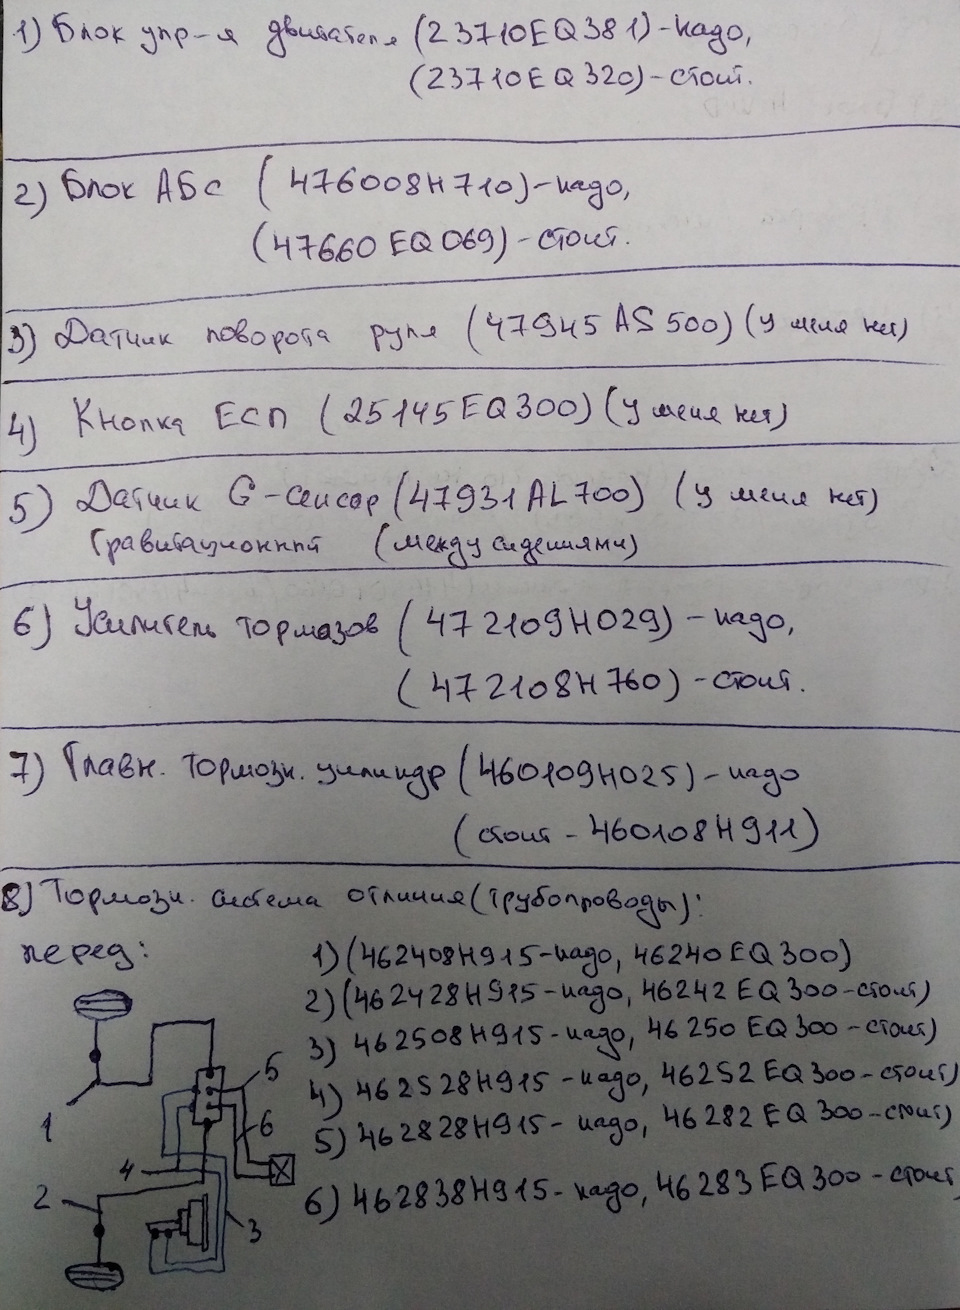 1) Блок упр-я двигателя (23710EQ381)-надо,
(23710EQ320)-стоит.
2) Блок АБС (476008H710)-надо,
(47660EQ069)-стоит.
3) Датчик поворота руля (47945AS500) (у меня нет)
4) Кнопка ЕСП (25145EQ300) (у меня нет)
5) Датчик G-сенсор (47931AL700) (у меня нет)
Гравитационный (между сидениями)
6) Усилитель тормозов (472109H029)-надо,
(472108H760)-стоит.
7) Главн. тормозн. цилиндр (460109H025)-надо
(стоит-460108H911)
8) Тормозн. система отличия (трубопроводы):
перед:
1) (462408H915-надо, 46240EQ300)
2) (462428H915-надо, 46242EQ300-стоит)
3) 462508H915-надо, 46250EQ300-стоит)
4) 462528H915-надо, 46252EQ300-стоит)
5) 462828H915-надо, 46282EQ300-стоит)
6) 462838H915-надо, 46283EQ300-стоит)
5
1
6
4
2
3